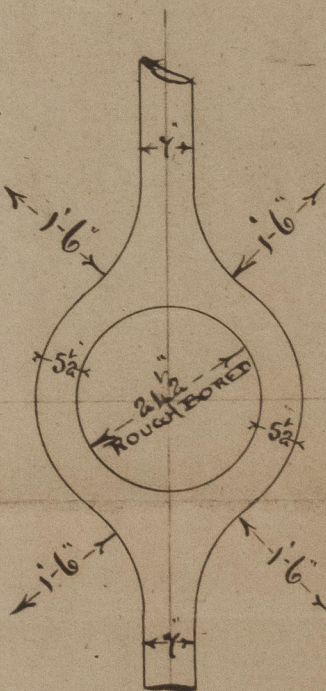 7"
1'-6"
1'-6"
5½"
24½"
ROUGH BORED
5½"
1'-6"
1'-6"
7"